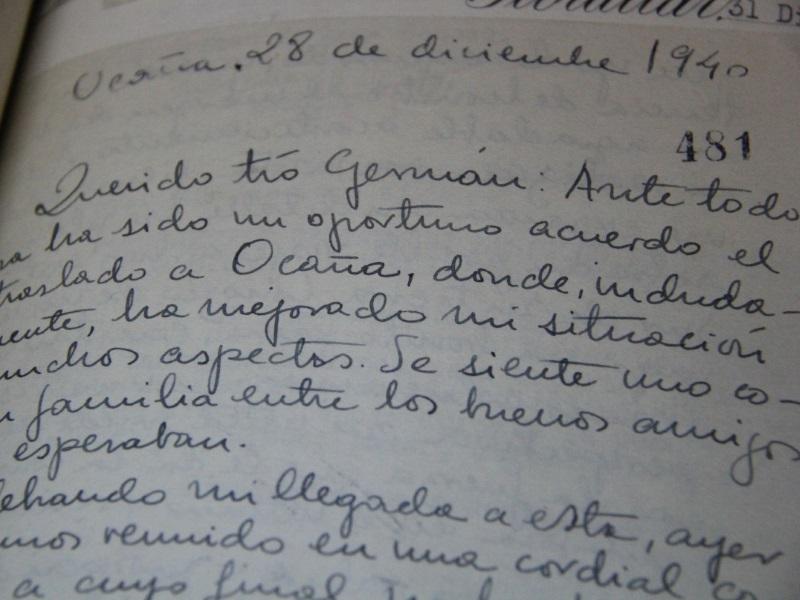 31 D
Ocaña. 28 de diciembre 1940
481
Querido tío Germán: Ante todo
ha sido un oportuno acuerdo el
traslado a Ocaña, donde, induda-
mente, ha mejorado mi situación
muchos aspectos. Se siente uno co-
familia entre los buenos amigos
esperaban.
mi llegada a esta, ayer
mos reunido en una cordial co
a cuyo final